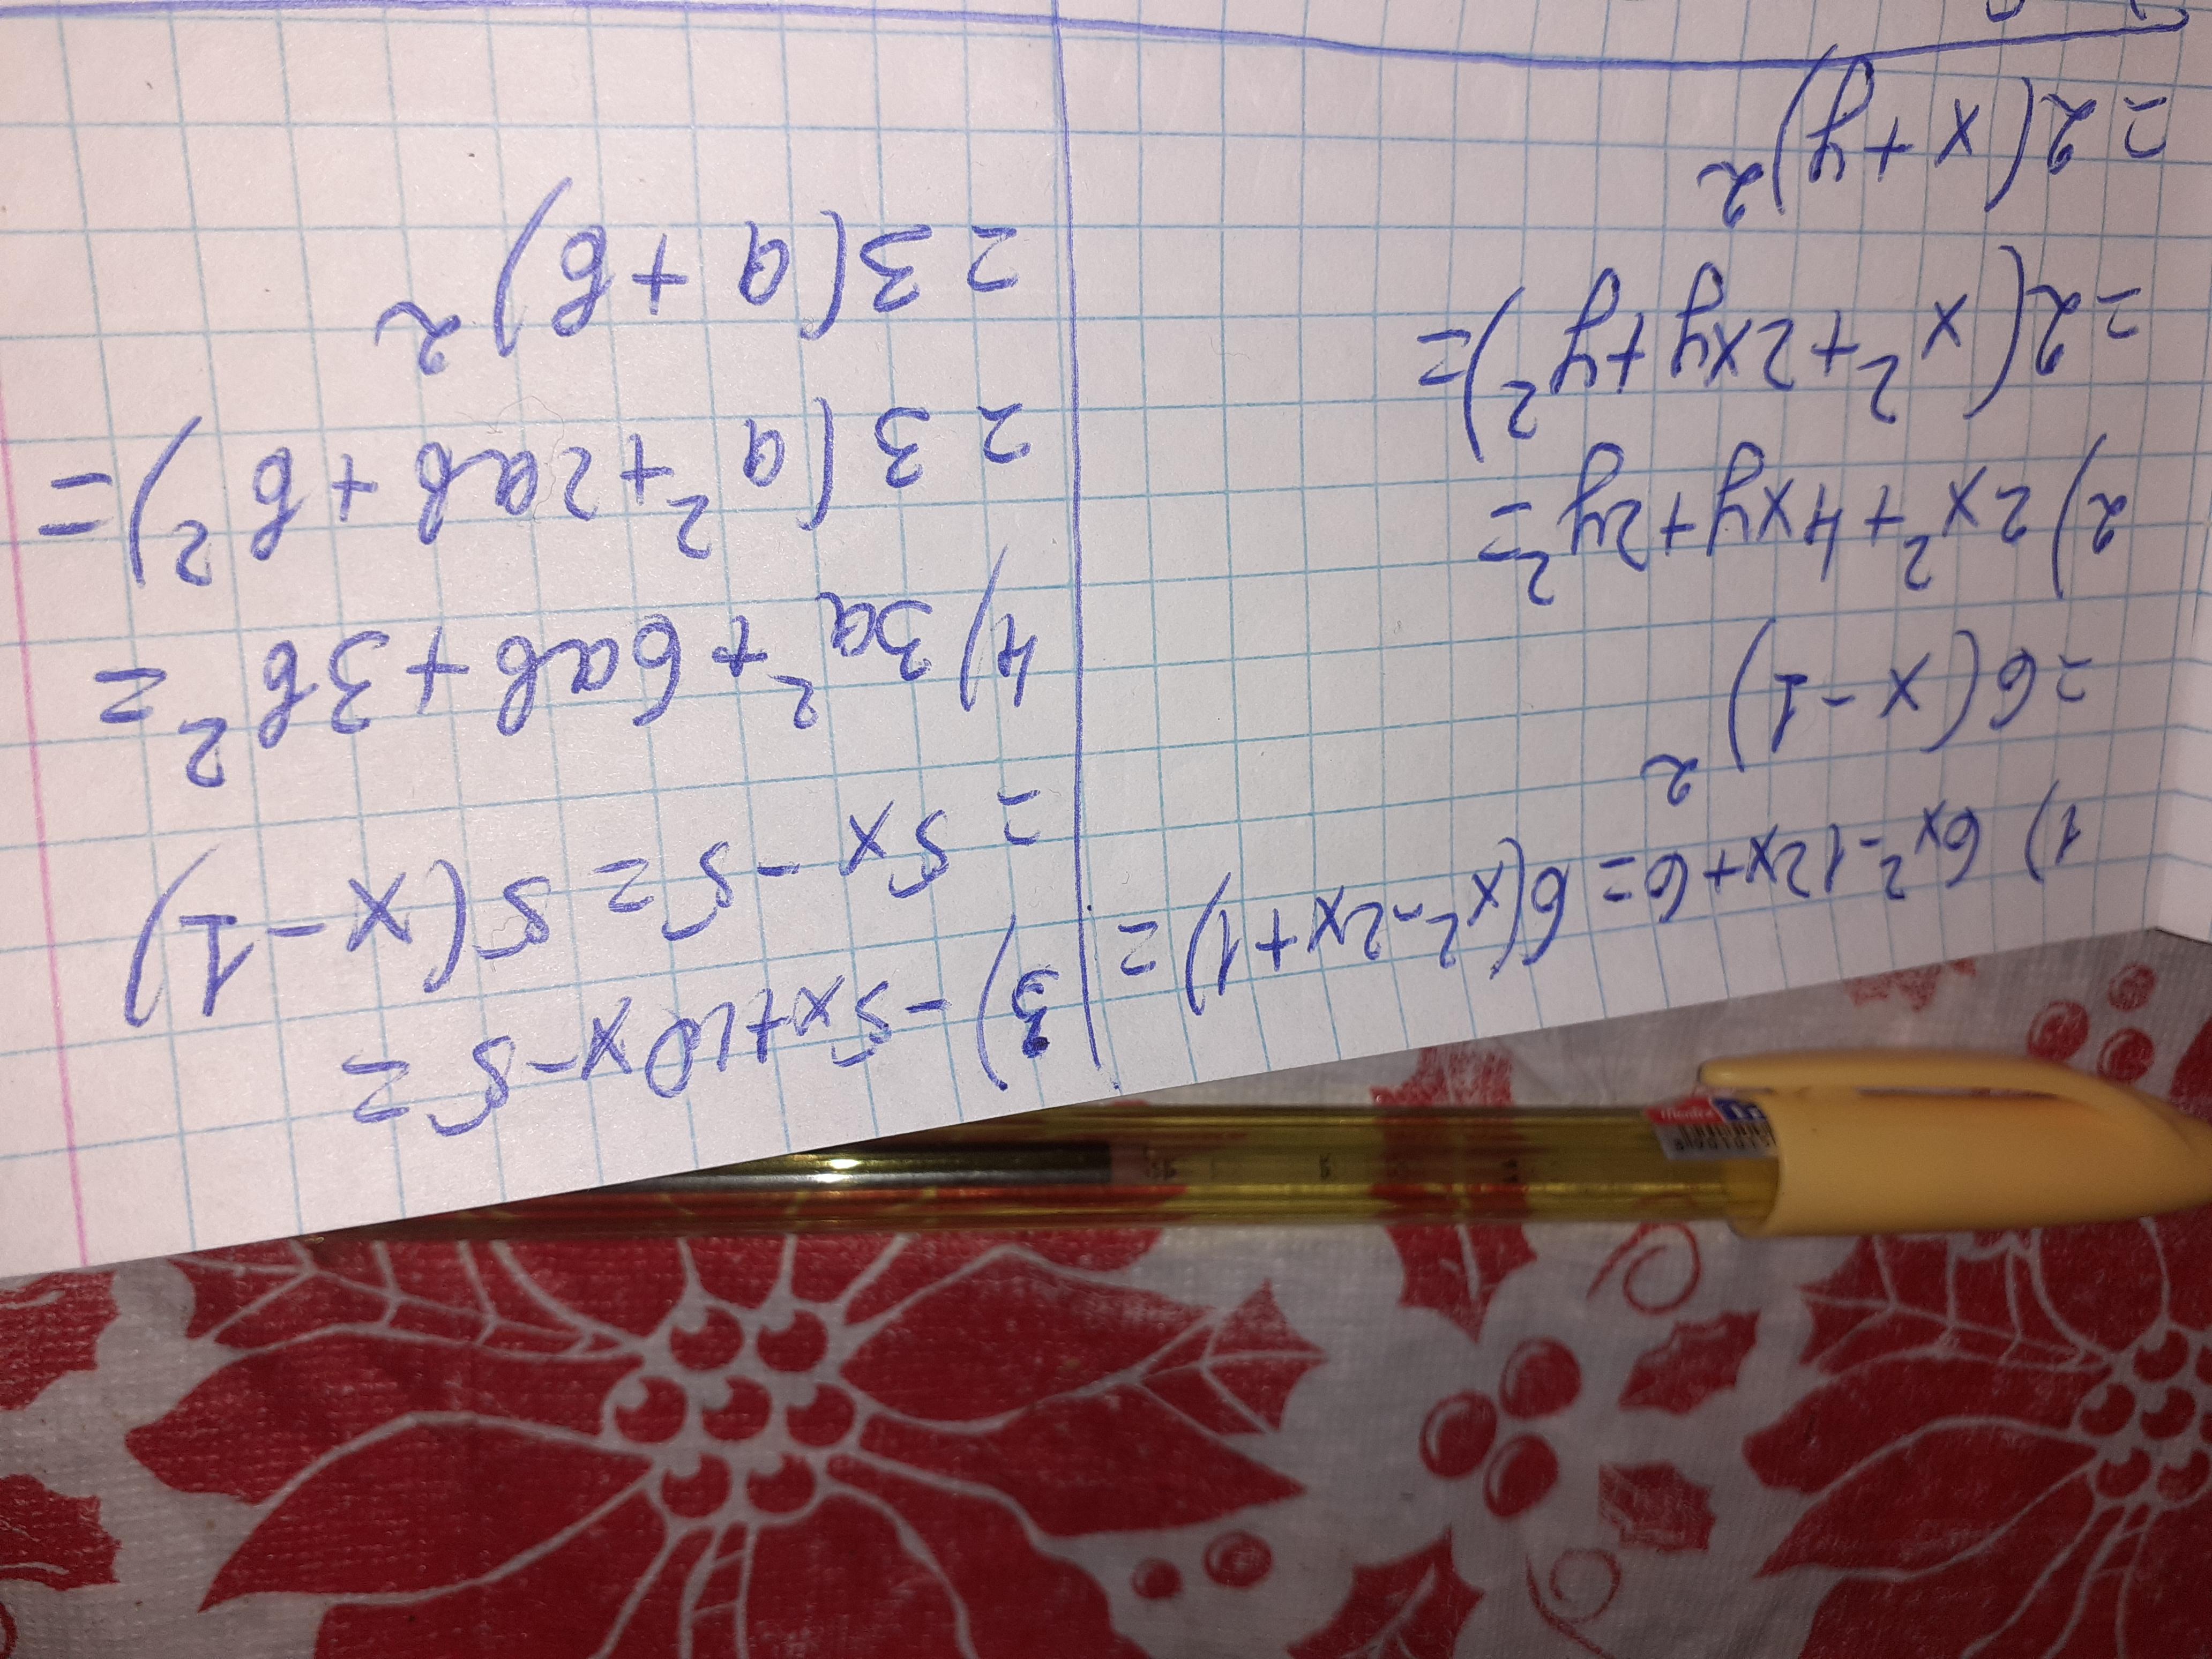 1) 6x²-12x+6=6(x²-2x+1)=
=6(x-1)²
2) 2x²+4xy+2y²=
=2(x²+2xy+y²)=
=2(x+y)²
3) -5x+10x-5=
=5x-5=5(x-1)
4) 3a²+6ab+3b²=
=3(a²+2ab+b²)=
=3(a+b)²